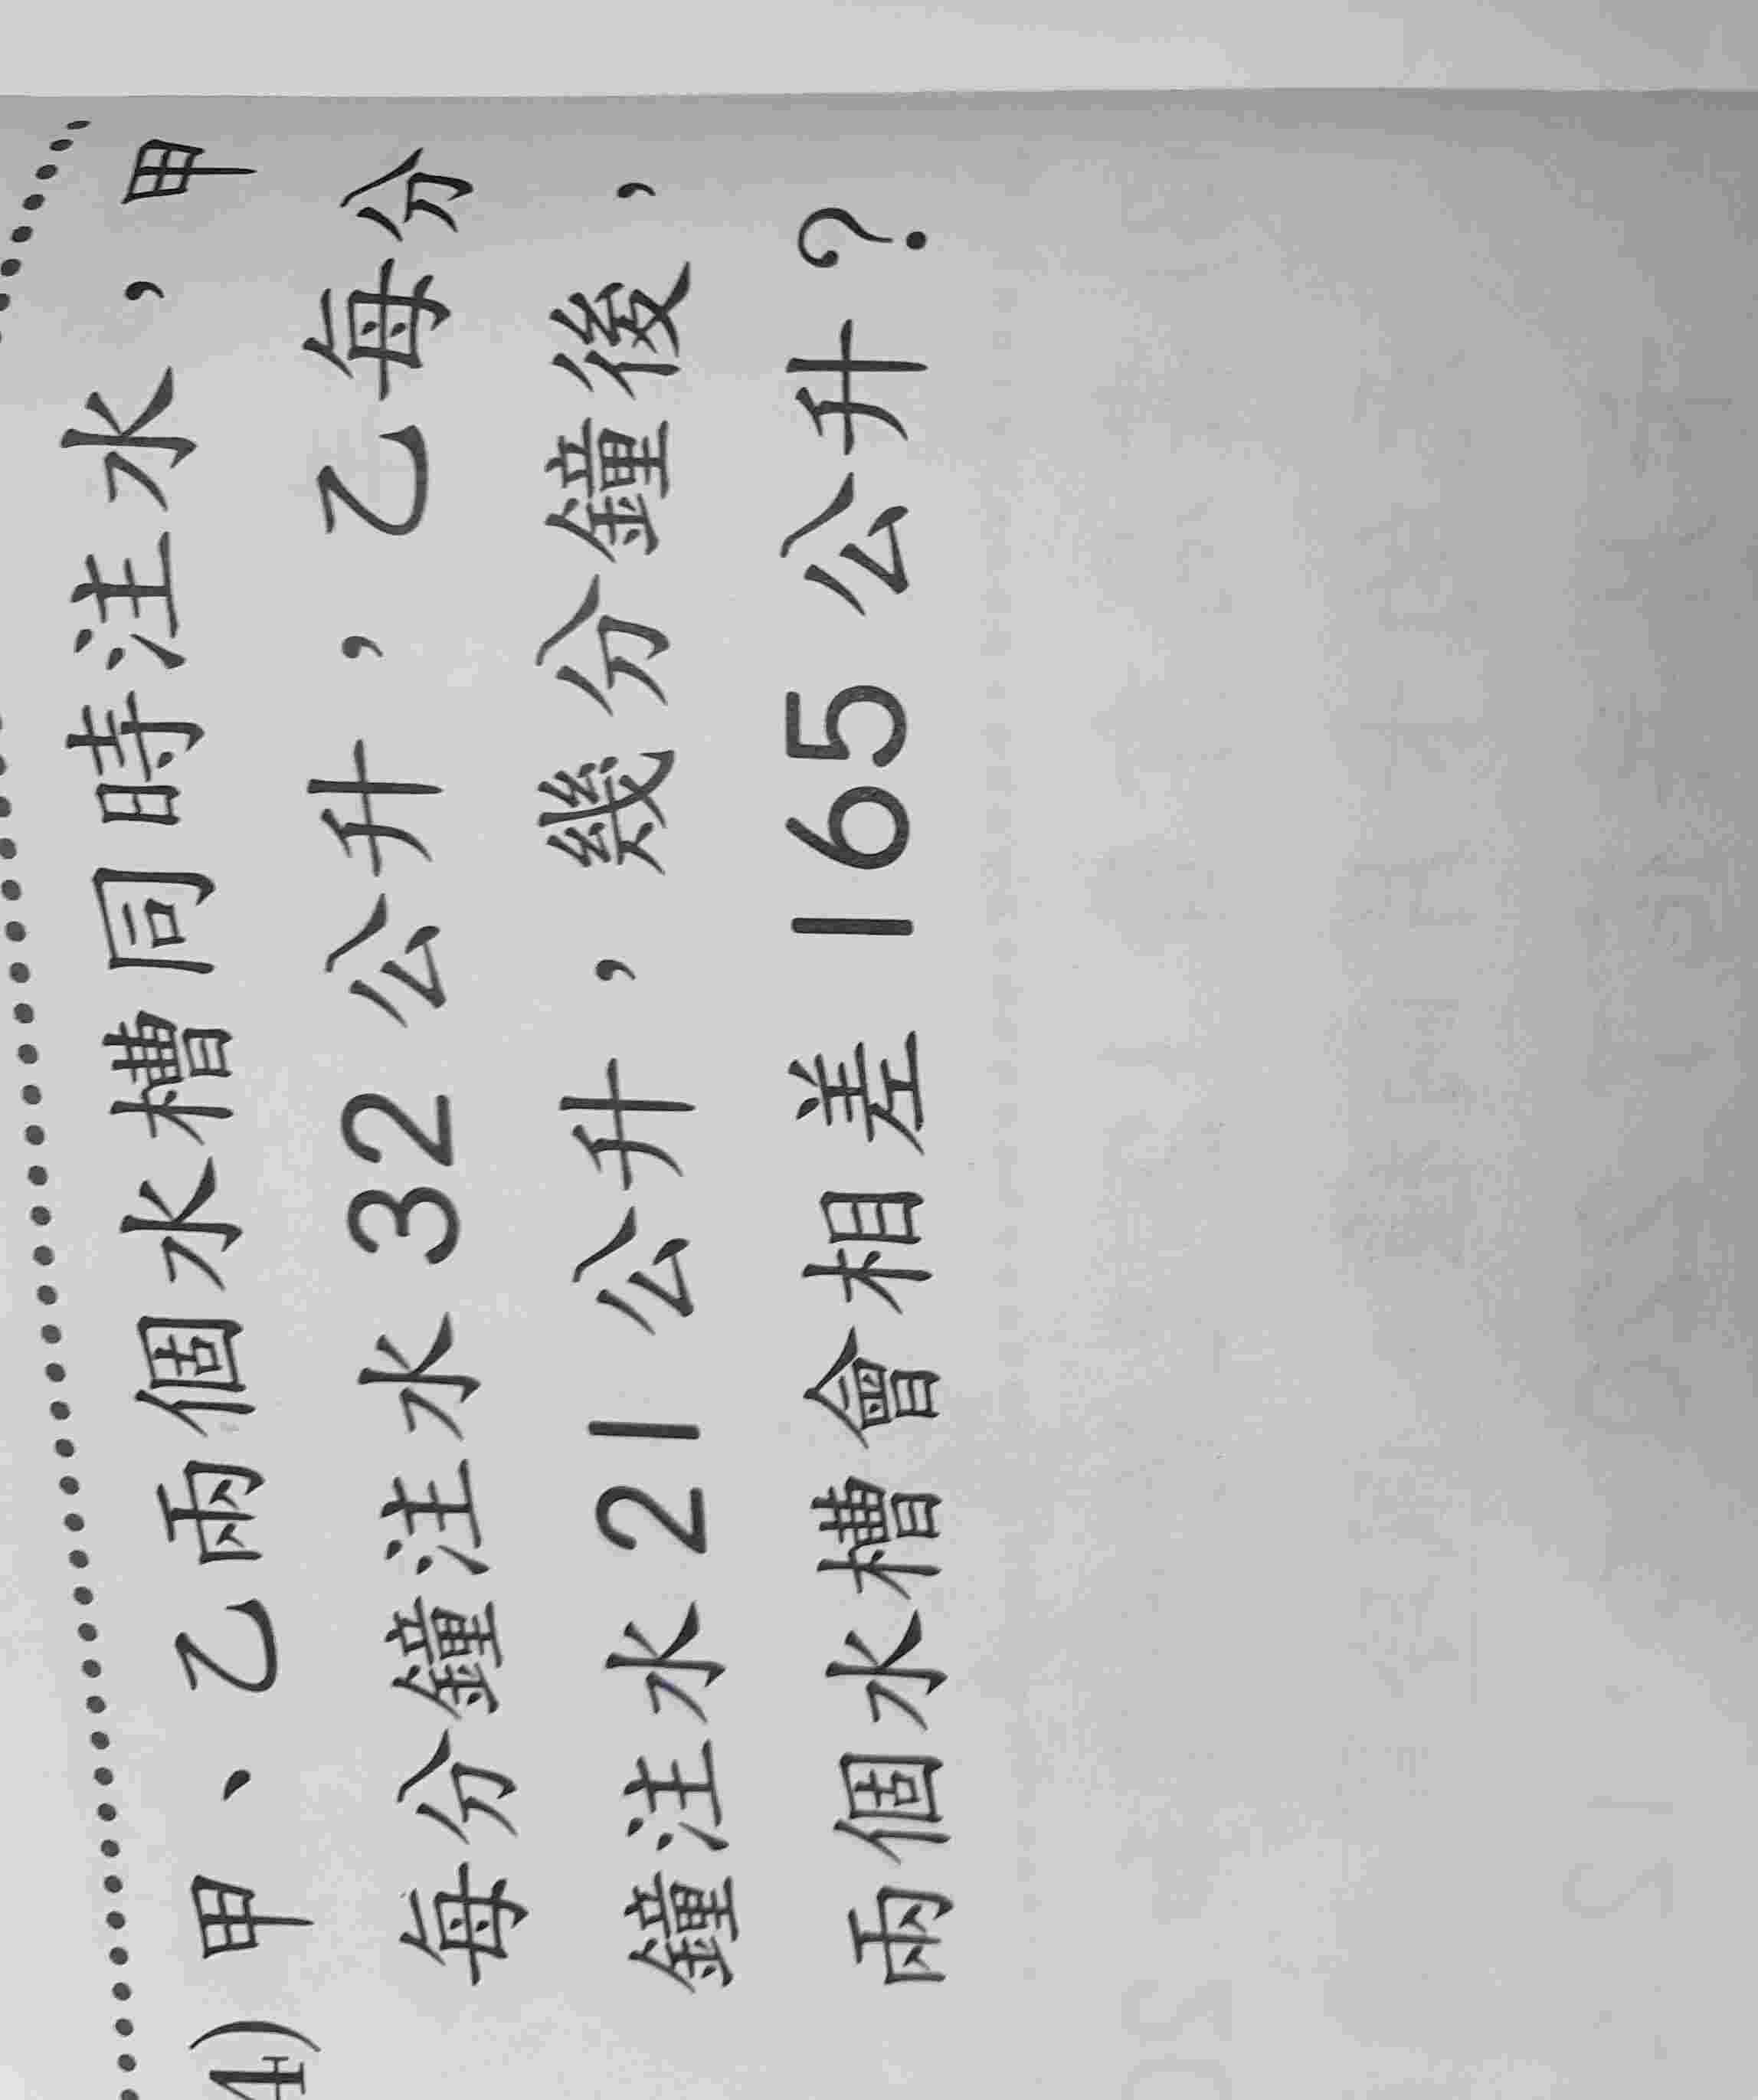 4) 甲、乙兩個水槽同時注水,甲
每分鐘注水 32 公升,乙每分
鐘注水 21 公升,幾分鐘後,
兩個水槽會相差 165 公升?